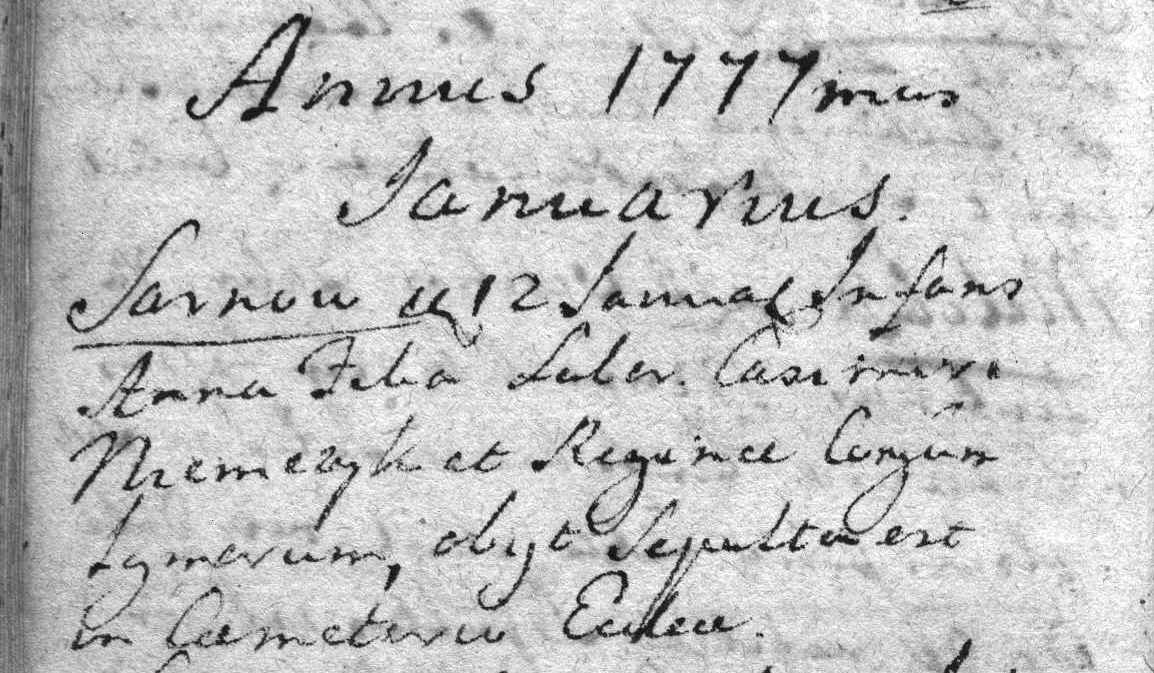 Annus 1777mus
Januarius.
Sarnow 12 Januar Infans
Anna Filia Labor. Casimiri
Niemczyk et Reginae Conjum
Lgmorum, obijt Sepulta est
in Caemeterio Eccleae.